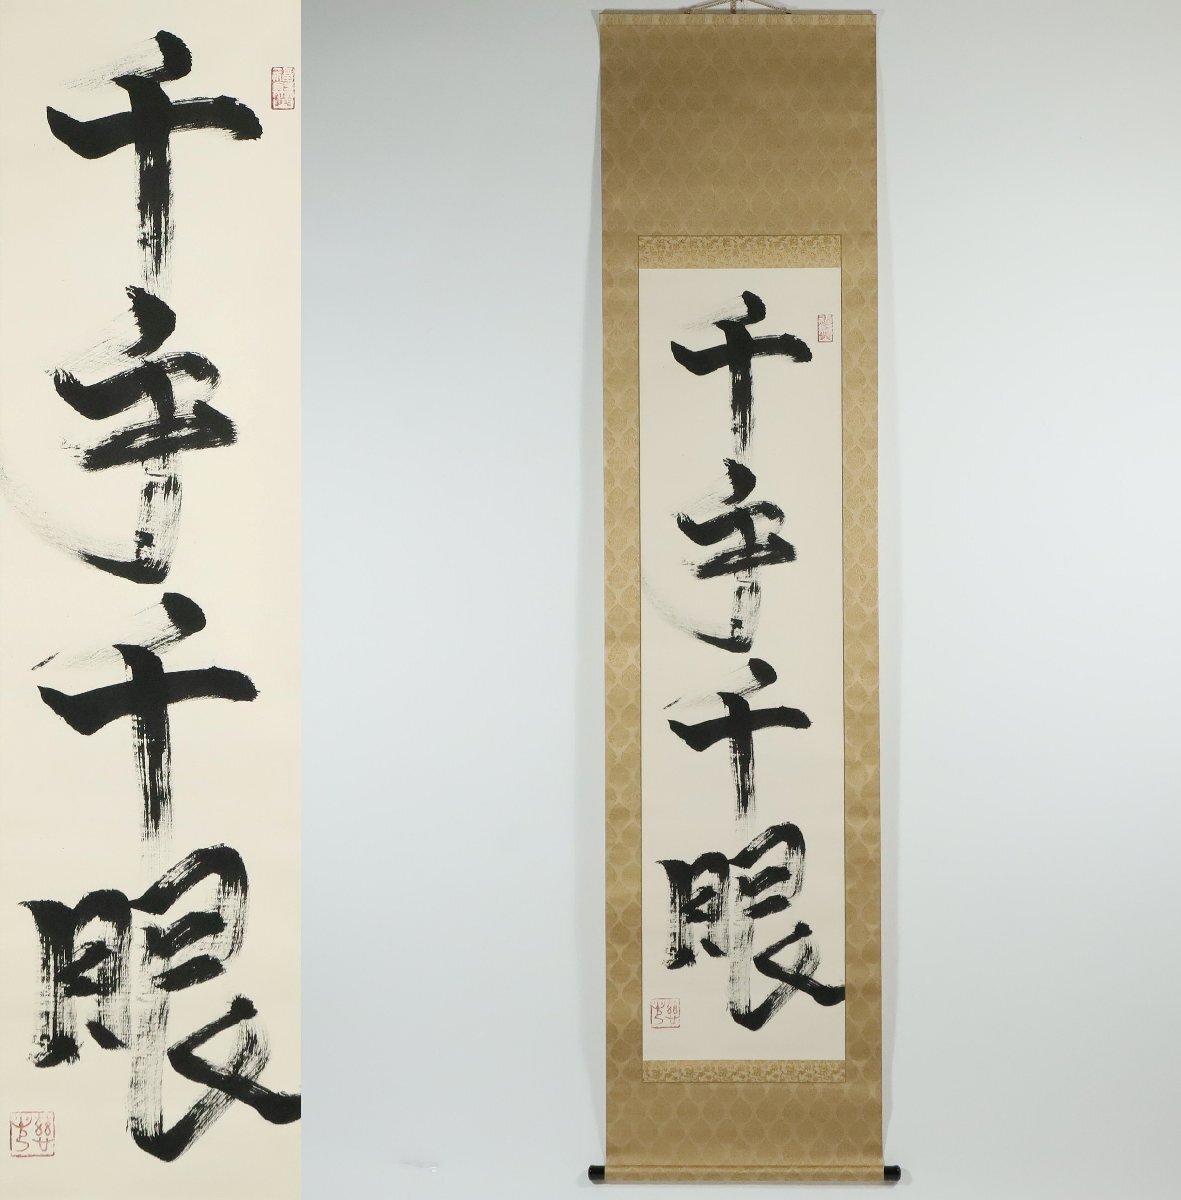 千手千眼
千手千眼